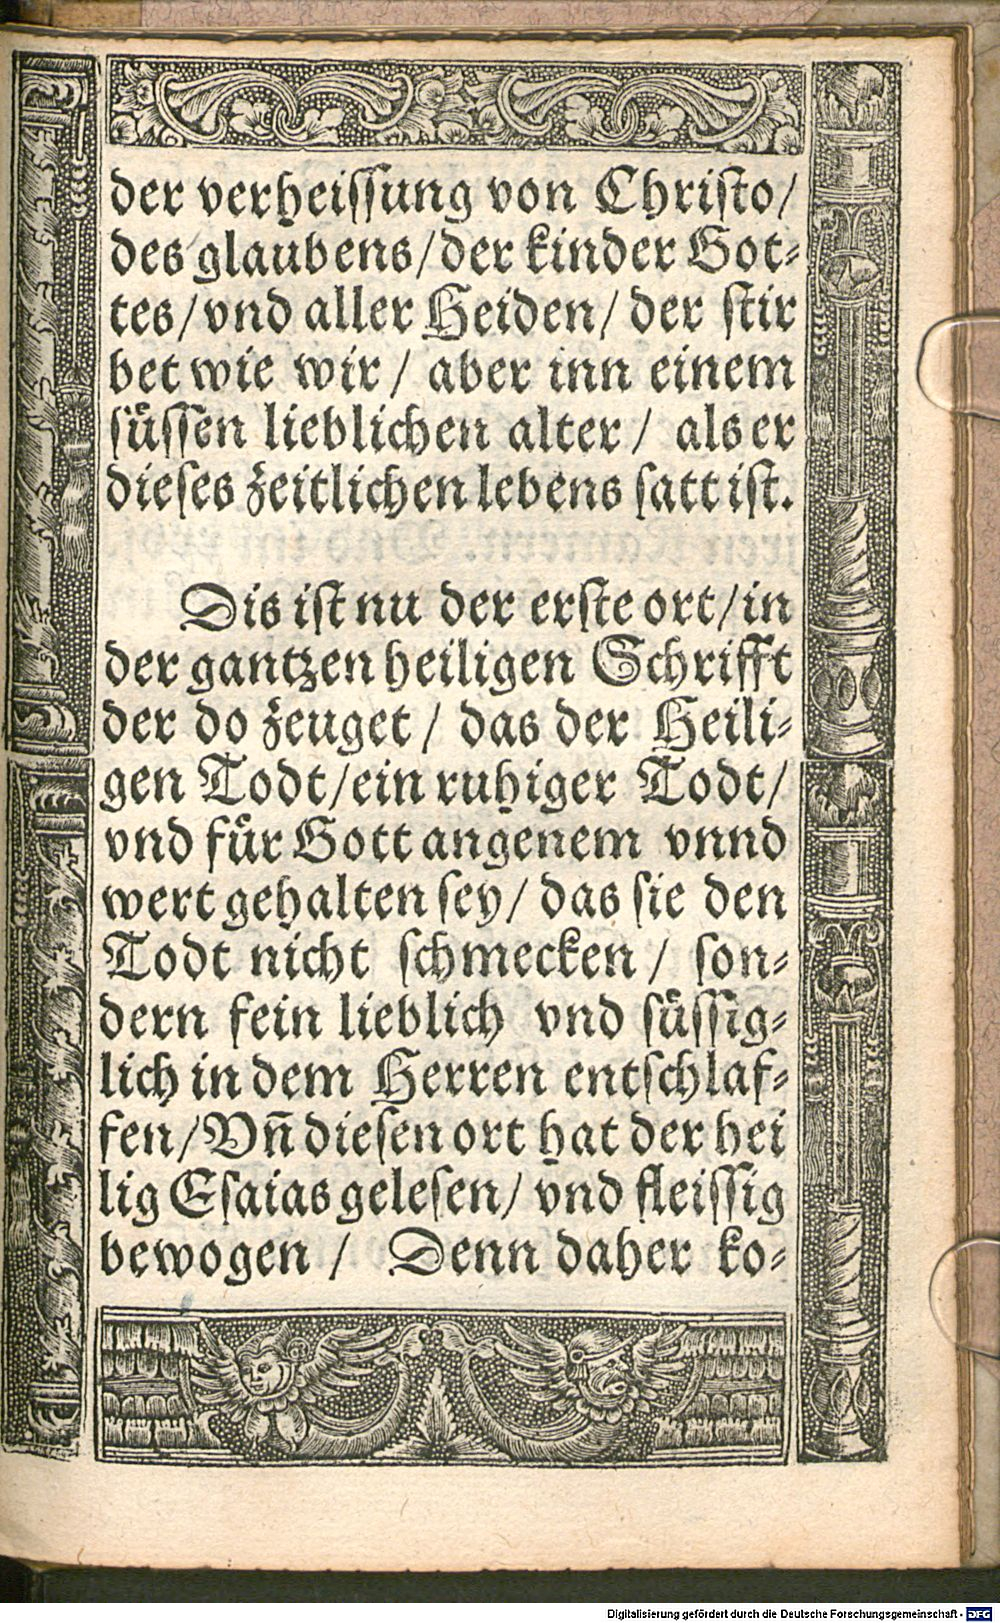 der verheissung von Christo/
des glaubens/der kinder Got⸗
tes/vnd aller Heiden/ der stir
bet wie wir/ aber inn einem
süssen lieblichen alter/ als er
dieses zeitlichen lebens satt ist.
Dis ist nu der erste ort/in
der gantzen heiligen Schrifft
der do zeuget/ das der Heili⸗
gen Todt/ein ruhiger Todt/
vnd für Gott angenem vnnd
wert gehalten sey/ das sie den
Todt nicht schmecken/ son⸗
dern fein lieblich vnd süssig⸗
lich in dem Herren entschlaf⸗
fen/Vn̄ diesen ort hat der hei
lig Esaias gelesen/ vnd fleissig
bewogen/ Denn daher ko⸗
Digitalisierung gefördert durch die Deutsche Forschungsgemeinschaft - DFG